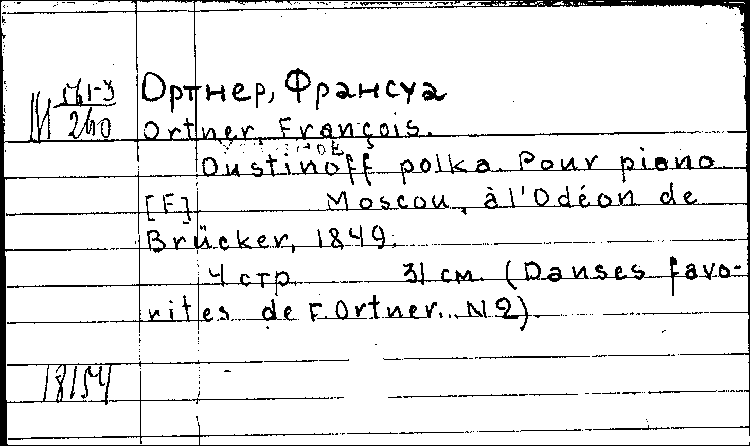 Ортнер, Франсуа
М 260
Ortner, François.
Oustinoff polka. Pour piano
[F] Moscou, à l'Odéon de
Brücker, 1849.
4 стр. 31 см. (Danses favo-
rites de F. Ortner.. N 2).
18154